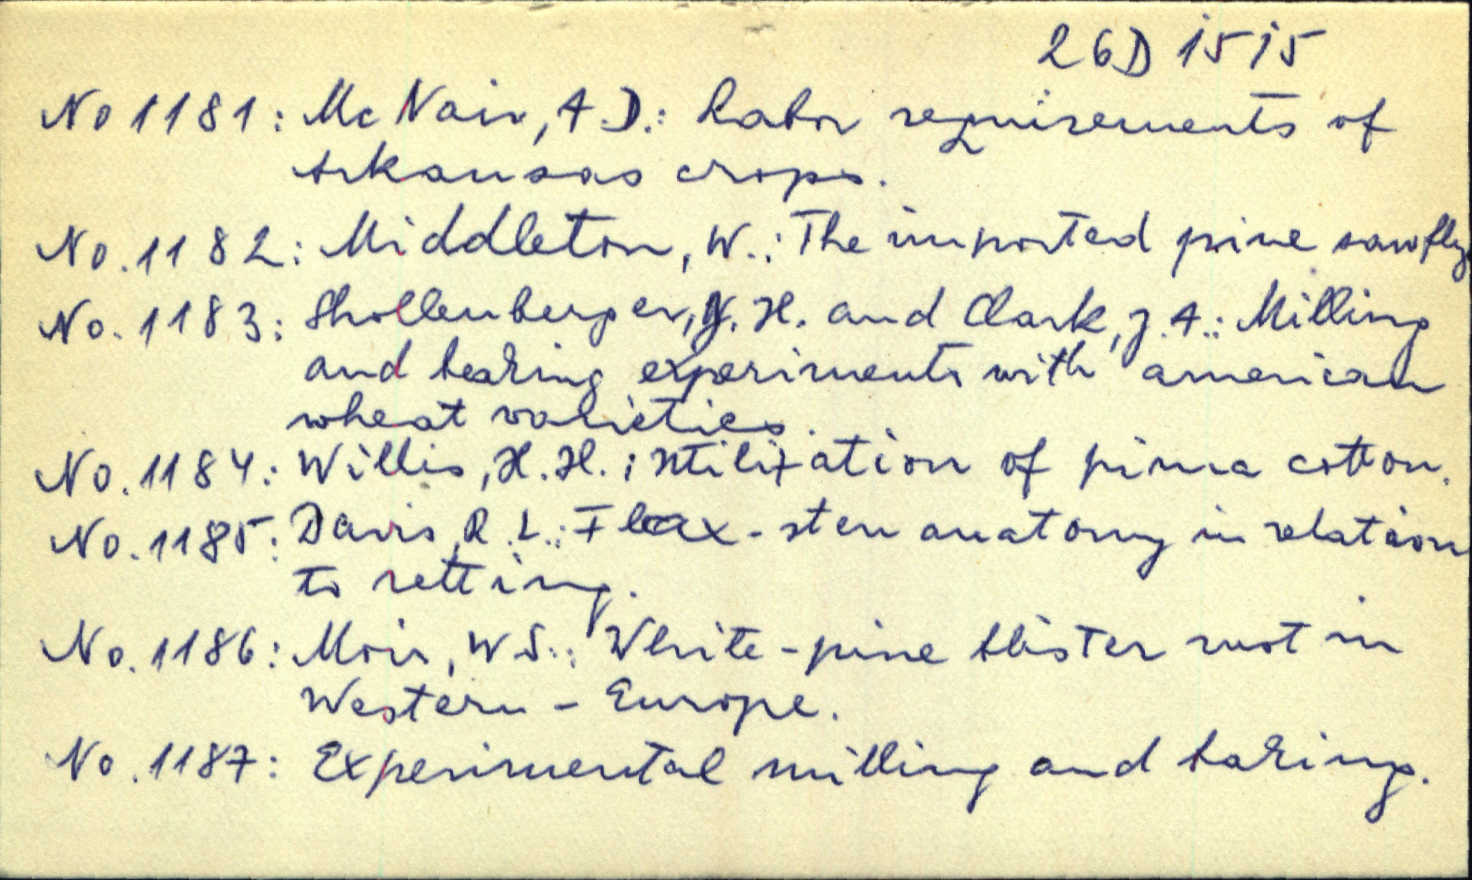 26D 1515
No 1181: Mc Nair, A.D.: Labor requirements of
Arkansas crops.
No. 1182: Middleton, W.: The imported pine sawfly
No. 1183: Shollenberger, J. H. and Clark, J. A.: Milling
and baking experiments with american
wheat varieties.
No. 1184: Willis, H. H.: Utilization of pima cotton.
No. 1185: Davis, R. L.: Flax-stem anatomy in relation
to retting.
No. 1186: Moir, W S.: White-pine blister rust in
Western-Europe.
No. 1187: Experimental milling and baking.